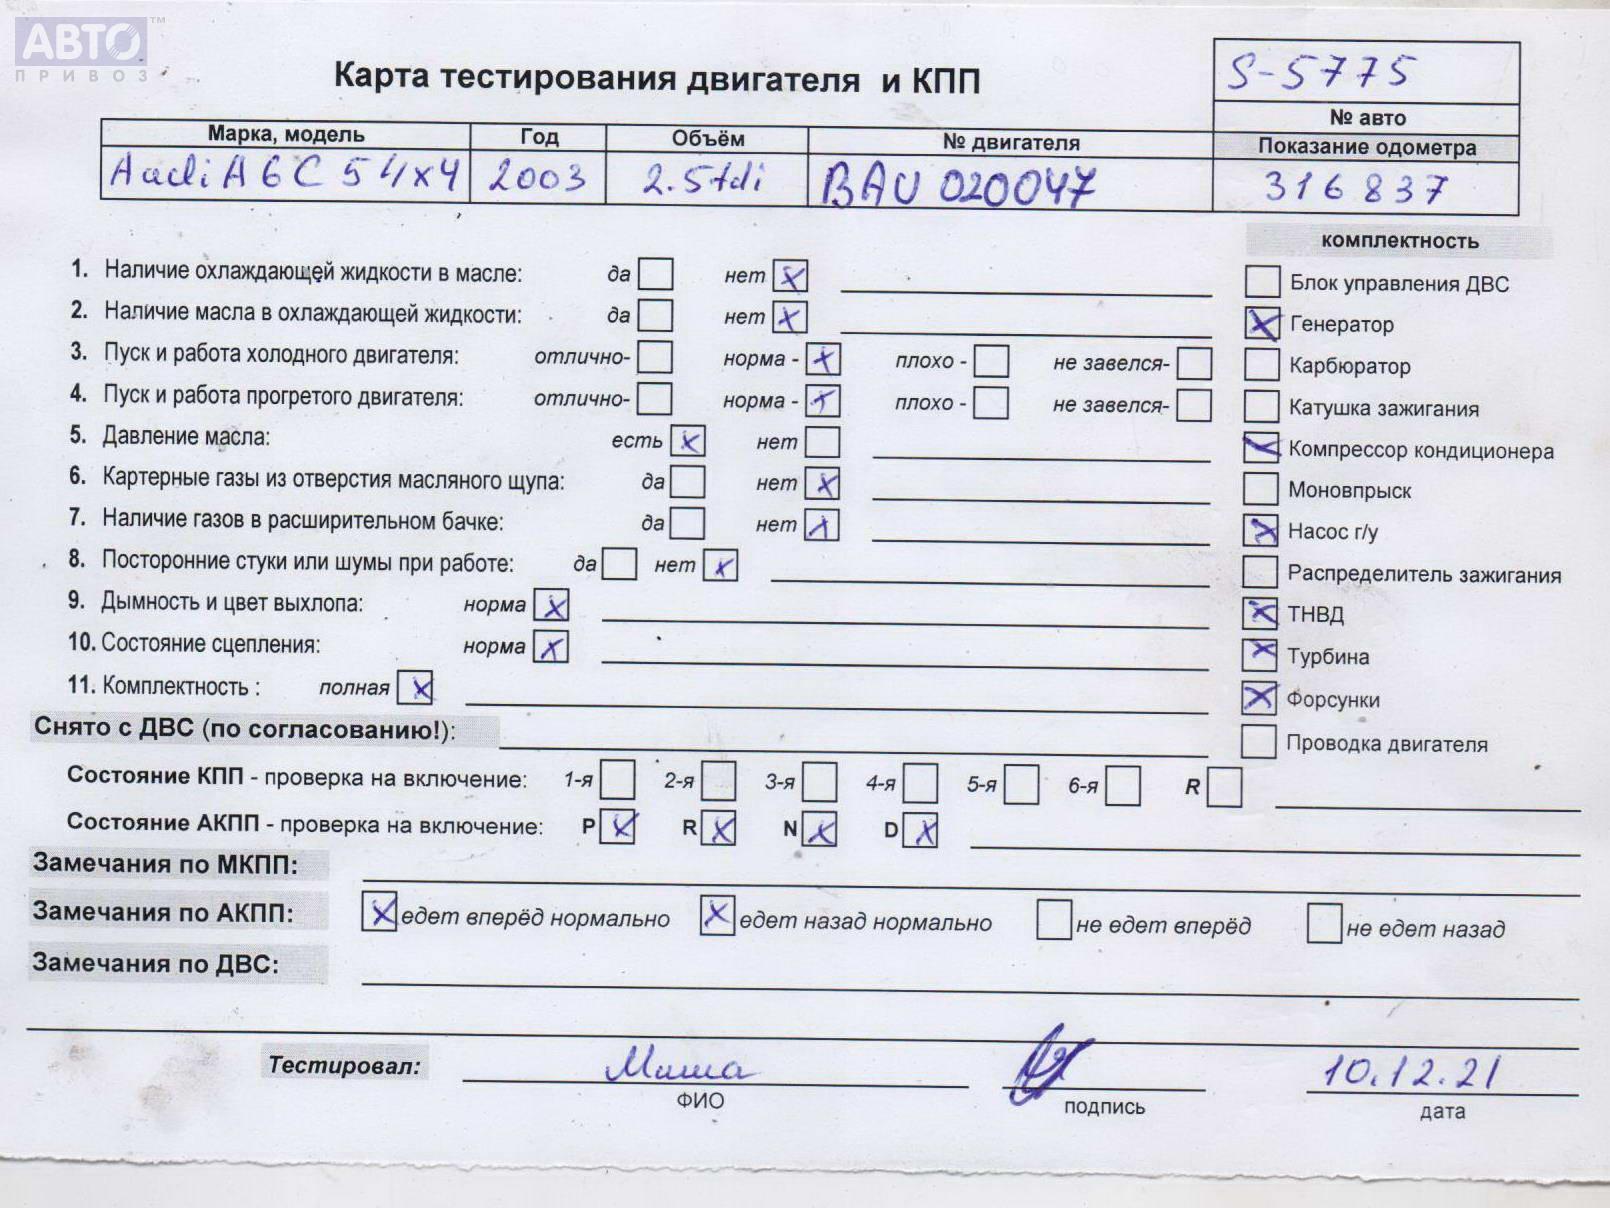 АВТО™
ПРИВОЗ
Карта тестирования двигателя и КПП
S-5775
№ авто
Марка, модель Год Объём № двигателя Показание одометра
Audi A6C5 4x4 2003 2.5tdi BAU 020047 316837
комплектность
1. Наличие охлаждающей жидкости в масле: да нет x
Блок управления ДВС
2. Наличие масла в охлаждающей жидкости: да нет x
x Генератор
3. Пуск и работа холодного двигателя: отлично- норма - x плохо - не завелся-
Карбюратор
4. Пуск и работа прогретого двигателя: отлично- норма - x плохо - не завелся-
Катушка зажигания
5. Давление масла: есть x нет
x Компрессор кондиционера
6. Картерные газы из отверстия масляного щупа: да нет x
Моновпрыск
7. Наличие газов в расширительном бачке: да нет x
x Насос г/у
8. Посторонние стуки или шумы при работе: да нет x
Распределитель зажигания
9. Дымность и цвет выхлопа: норма x
x ТНВД
10. Состояние сцепления: норма x
x Турбина
11. Комплектность : полная x
x Форсунки
Снято с ДВС (по согласованию!):
Проводка двигателя
Состояние КПП - проверка на включение: 1-я 2-я 3-я 4-я 5-я 6-я R
Состояние АКПП - проверка на включение: P x R x N x D x
Замечания по МКПП:
Замечания по АКПП: x едет вперёд нормально x едет назад нормально не едет вперёд не едет назад
Замечания по ДВС:
Тестировал: Миша 10.12.21
ФИО подпись дата